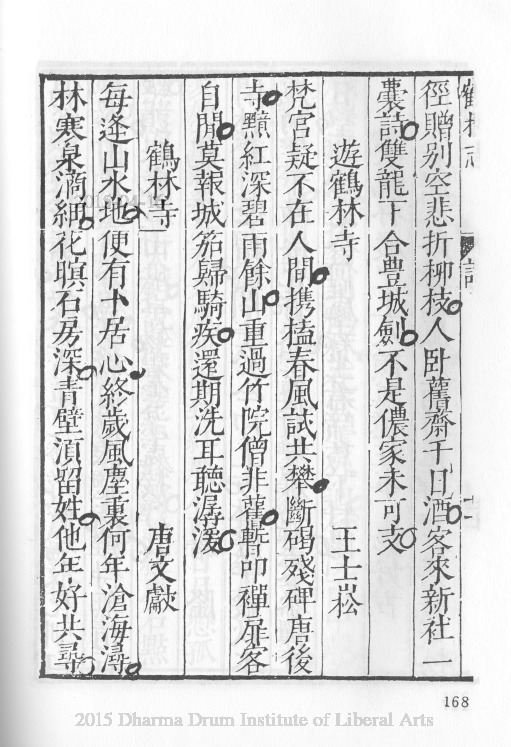 徑贈別空悲折柳枝人卧舊齋千日酒客來新社一
囊詩雙龍下合豊城劍不是儂家未可支
遊鶴林寺　王士崧
梵宮疑不在人間携榼春風試共攀斷碣殘碑唐後
寺黯紅深碧雨餘山重過竹院僧非舊暫叩禪扉客
自閒莫報城笳歸騎疾還期洗耳聽潺湲
鶴林寺　唐文獻
每逢山水地便有卜居心終歲風塵裏何年滄海潯
林寒泉滴細花暝石房深青壁湏留姓他年好共尋
168
2015 Dharma Drum Institute of Liberal Arts